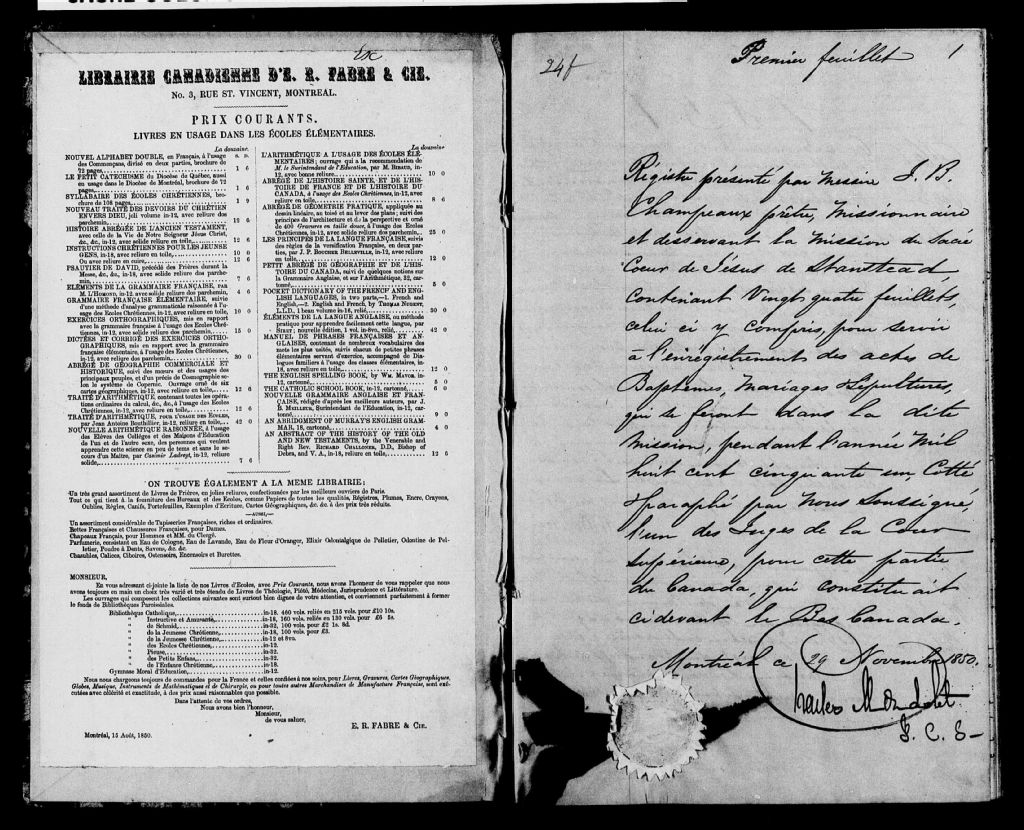 LIBRAIRIE CANADIENNE D'E. R. FABRE & CIE.
No. 3, RUE ST. VINCENT, MONTREAL.
PRIX COURANTS.
LIVRES EN USAGE DANS LES ÉCOLES ÉLÉMENTAIRES.
La douzaine.
S. D.
NOUVEL ALPHABET DOUBLE, en Français, à l'usage
des Commençans, divisé en deux parties, brochure de
72 pages, 1 6
LE PETIT CATECHISME du Diocèse de Québec, aussi
en usage dans le Diocèse de Montréal, brochure de 72
pages, 1 6
SYLLABAIRE DES ÉCOLES CHRÉTIENNES, bro-
chure de 108 pages, 1 9
NOUVEAU TRAITÉ DES DEVOIRS DU CHRÉTIEN
ENVERS DIEU, joli volume in-12, avec reliure des
parchemin, 12 6
HISTOIRE ABRÉGÉE DE L'ANCIEN TESTAMENT,
avec celle de la Vie de Notre Seigneur Jésus Christ,
&c., &c., in-12, avec solide reliure en toile, 12 6
INSTRUCTIONS CHRÉTIENNES POUR LES JEUNES
GENS, in-18, avec reliure en toile, 10 0
Ou avec reliure en cuire,
PSAUTIER DE DAVID, précédé des Prières durant la
Messe, &c., &c., in-18, avec solide reliure des parche-
min, 7 6
ELÉMENS DE LA GRAMMAIRE FRANÇAISE, par
M. L'HOMOND, in-12, avec solide reliure des parchemin, 4 6
GRAMMAIRE FRANÇAISE ÉLÉMENTAIRE, suivie
d'une méthode d'analyse grammaticale raisonnée à l'u-
sage des Ecoles Chrétiennes, in-12, avec reliure en toile, 10 0
EXERCICES ORTHOGRAPHIQUES, mis en rapport
avec la grammaire française à l'usage des Ecoles Chré-
tiennes, in-12, avec solide reliure des parchemin, 15 0
DICTÉES ET CORRIGÉ DES EXERCICES ORTHO-
GRAPHIQUES, mis en rapport avec la grammaire
française élémentaire, à l'usage des Ecoles Chrétiennes,
in-12, avec reliure des parchemin, 30 0
ABRÉGÉ DE GÉOGRAPHIE COMMERCIALE ET
HISTORIQUE, suivi des mœurs et des usages des
principaux peuples, et d'un précis de Cosmographie se-
lon le système de Copernic. Ouvrage orné de six
cartes géographiques, in-12, avec reliure en toile, 12 6
TRAITÉ D'ARITHMÉTIQUE, contenant toutes les opé-
rations ordinaires du calcul, &c., à l'usage des Ecoles
Chrétiennes, in-12, avec reliure en toile, 12 6
TRAITÉ D'ARITHMÉTIQUE, POUR L'USAGE DES ECOLES,
par Jean Antoine Bouthillier, in-12, avec reliure en toile, 42 0
NOUVELLE ARITHMÉTIQUE RAISONNÉE, à l'usage
des Elèves des Collèges et des Maisons d'Éducation
de l'un et de l'autre sexe, des personnes qui veulent
apprendre cette science en peu de tems et sans le se-
cours d'un Maître, par Casimir Ladreyt, in-12, reliure
solide, 7 6
La douzaine
L'ARITHMÉTIQUE A L'USAGE DES ÉCOLES ÉLÉ-
MENTAIRES; ouvrage qui a la recommendation de
M. le Surintendant de l'Education, par M. BIBAUD, in-
12, avec bonne reliure, 10 0
ABRÉGÉ DE L'HISTOIRE SAINTE, ET DE L'HIS-
TOIRE DE FRANCE ET DE L'HISTOIRE DU
CANADA, à l'usage des Ecoles Chrétiennes, in-12, avec
reliure en toile, 8 6
ABRÉGÉ DE GÉOMETRIE PRATIQUE, appliquée au
dessin linéaire, au toisé et au lever des plans; suivi des
principes de l'architecture et de la perspective et orné
de 400 Gravures en taille douce, à l'usage des Ecoles
Chrétiennes, in-12, avec solide reliure des parchemin, 25 0
LES PRINCIPES DE LA LANGUE FRANÇAISE, suivis
des règles de la versification Française, en deux par-
ties, par J. P. BOUCHER BELLEVILLE, in-12, avec reliure
en toile, 12 0
PETIT ABRÉGÉ DE GÉOGRAPHIE ET DE L'HIS-
TOIRE DU CANADA, suivi de quelques notions sur
la Grammaire Anglaise, et sur l'Arithmétique, 32, car-
tonné, 5 0
POCKET DICTIONARY OF THE FRENCH AND EN-
GLISH LANGUAGES, in two parts,—1. French and
English,—2. English and French, by THOMAS NUGENT,
L.L.D., 1 beau volume in-16, relié, 30 0
ÉLÉMENS DE LA LANGUE ANGLAISE, ou méthode
pratique pour apprendre facilement cette langue, par
SIRET; nouvelle édition, 1 vol. in-8vo, relié, 42 0
MANUEL DE PHRASES FRANÇAISES ET AN-
GLAISES, contenant de nombreux vocabulaires des
mots les plus usités, suivis chacun de petites phrases
élémentaires servant d'exercice, accompagné de Dia-
logues familiers à l'usage des classes élémentaires, in-
18, avec reliure en toile, 12 0
THE ENGLISH SPELLING BOOK, by WM. MAVOR, in-
12, cartonné, 5 0
THE CATHOLIC SCHOOL BOOK, in-12, cartonné, 6 0
NOUVELLE GRAMMAIRE ANGLAISE ET FRAN-
ÇAISE, rédigée d'après les meilleurs auteurs, par J.
B. MEILLEUR, Surintendant de l'Education, in-12, car-
tonné, 9 0
AN ABRIDGMENT OF MURRAY'S ENGLISH GRAM-
MAR, 18, cartonné, 4 0
AN ABSTRACT OF THE HISTORY OF THE OLD
AND NEW TESTAMENTS, by the Venerable and
Right Rev. RICHARD CHALLONER, D.D., Bishop of
Debra, and V. A., in-18, reliure en toile, 12 6
ON TROUVE ÉGALEMENT A LA MEME LIBRAIRIE:
Un très grand assortiment de Livres de Prières, en jolies reliures, confectionnées par les meilleurs ouvriers de Paris.
Tout ce qui tient à la fourniture des Bureaux et des Ecoles, comme Papiers de toutes les qualités, Régistres, Plumes, Encre, Crayons,
Oublies, Règles, Canifs, Portefeuilles, Exemples d'Ecriture, Cartes Géographiques, &c. &c. à des prix très réduits.
—AUSSI,—
Un assortiment considérable de Tapisseries Françaises, riches et ordinaires.
Bottes Françaises et Chaussures Françaises, pour Dames.
Chapeaux Français, pour Hommes et MM. du Clergé.
Parfumerie, consistant en Eau de Cologne, Eau de Lavande, Eau de Fleur d'Oranger, Elixir Odontalgique de Pelletier, Odontine de Pel-
letier, Poudre à Dents, Savons, &c. &c.
Chasubles, Calices, Ciboires, Ostensoirs, Encensoirs et Burettes.
MONSIEUR,
En vous adressant ci-jointe la liste de nos Livres d'Ecoles, avec Prix Courants, nous avons l'honneur de vous rappeler que nous
avons toujours en main un choix très varié et très étendu de Livres de Théologie, Piété, Médecine, Jurisprudence et Littérature.
Les ouvrages qui composent les collections suivantes sont surtout bien dignes de votre attention, et conviennent parfaitement à former
le fonds de Bibliothèques Paroissiales.
Bibliothèque Catholique, in-18. 460 vols. reliés en 215 vols. pour £10 10s.
" Instructive et Amusante, in-18, 160 vols. reliés en 130 vols. pour £6 5s.
" de Schmid, in-32, 100 vols. pour £2 1s. 8d.
" de la Jeunesse Chrétienne, in-18, 100 vols. pour £3.
" de la Jeunesse Chrétienne, in-12 et 8vo.
" des Ecoles Chrétiennes, in-12.
" Pieuse, in-32.
" des Petits Enfans, in-32.
" de l'Enfance Chrétienne, in-18.
Gymnase Moral d'Education, in-12.
Nous nous chargeons toujours de commandes pour la France et celles confiées à nos soins, pour Livres, Gravures, Cartes Géographiques,
Globes, Musique, Instruments de Mathématiques et de Chirurgie, ou pour toutes autres Marchandises de Manufacture Française, sont exé-
cutées avec célérité et exactitude, à des prix aussi raisonnables que possible.
Dans l'attente de vos ordres,
Nous avons bien l'honneur,
Monsieur,
de vous saluer,
E. R. FABRE & CIE.
Montréal, 15 Août, 1850.
24f
Premier feuillet 1
Régistre présenté par Messire J. B.
Champeaux prêtre, Missionnaire
et desservant la mission du Sacré
Coeur de Jésus de Stanstead
Contenant Vingt quatre feuillets,
celui ci y compris, pour servir
à l'enrégistrement des actes de
Baptêmes, Mariages & Sépultures,
qui se feront dans la dite
mission, pendant l'année Mil
huit cent cinquante un, Cotté
& paraphé par Nous Soussigné,
l'un des Juges de la Cour
Supérieure, pour cette partie
du Canada, qui constituait
cidevant le Bas Canada.
Montréal ce 29 Novembre 1850.
Charles Mondelet
J. C. S—